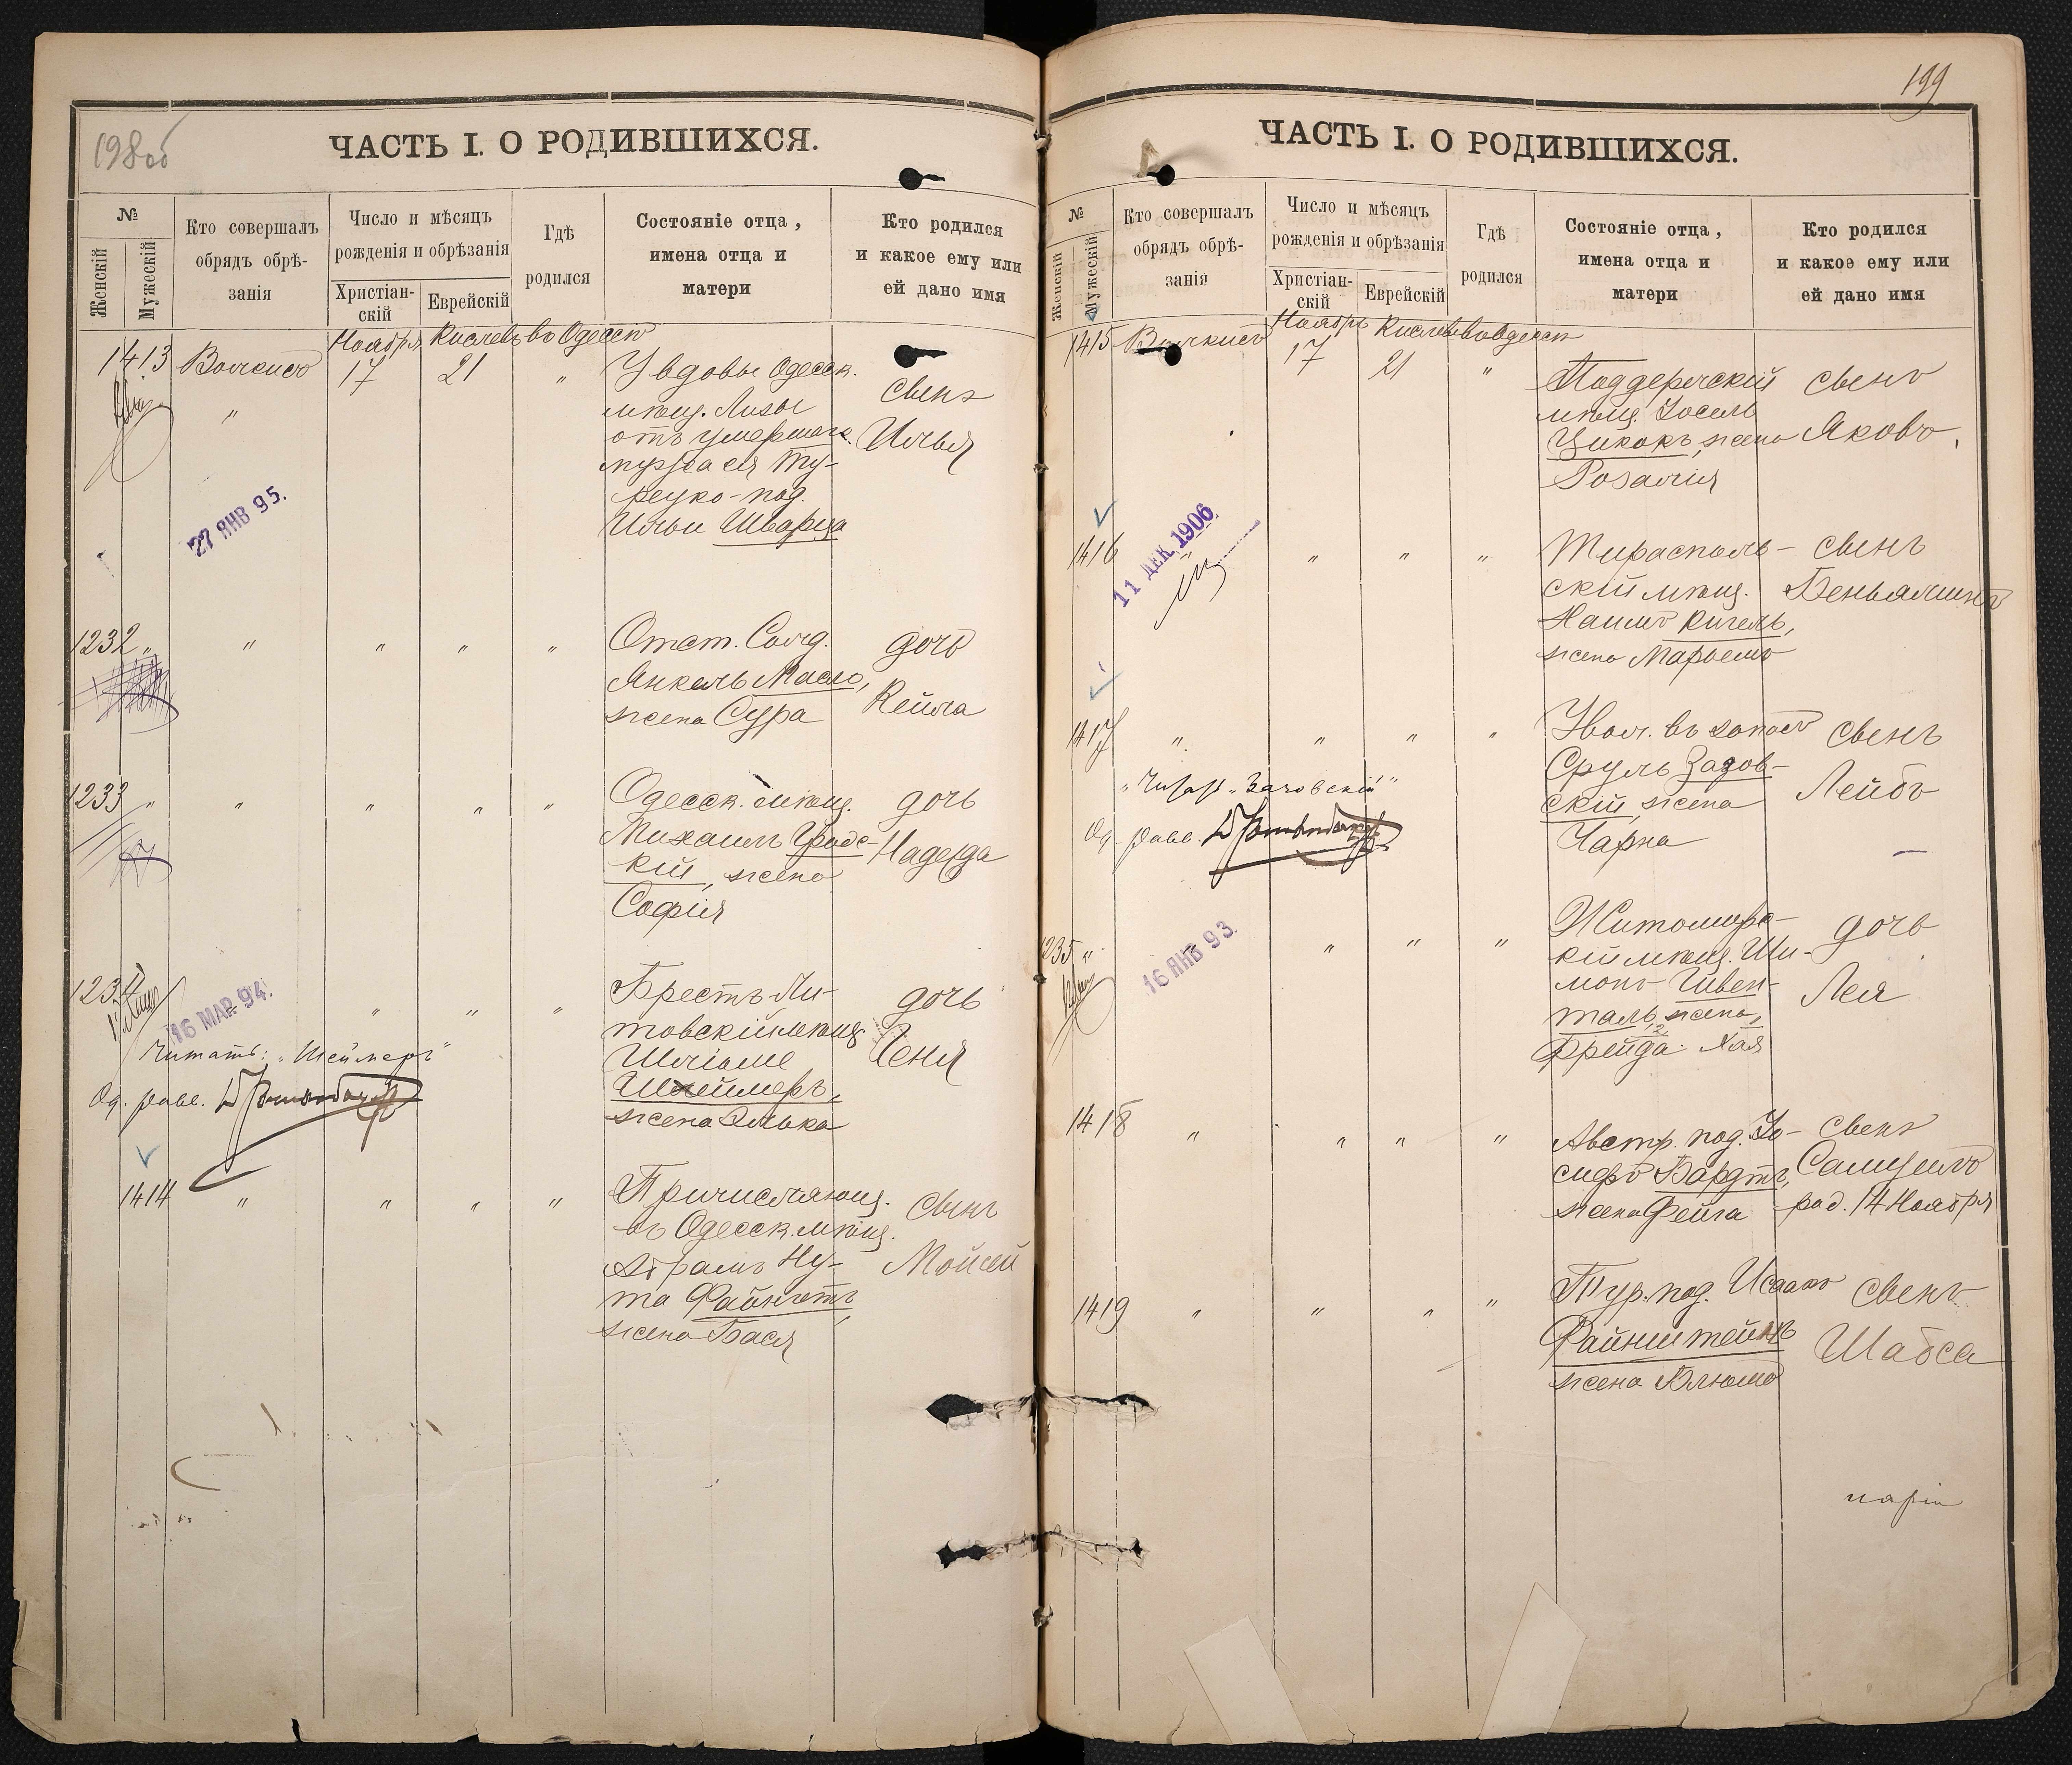 198об
ЧАСТЬ I. О РОДИВШИХСЯ.
№
Женскій
Мужескій
Кто совершалъ
обрядъ обрѣ-
занія
Число и мѣсяцъ
рожденія и обрѣзанія
Христіан-
скій
Еврейскій
Гдѣ
родился
Состояніе отца,
имена отца и
матери
Кто родился
и какое ему или
ей дано имя
Ноября Кислевъ въ Одессѣ
1413 17 21 "
У вдовы Одесск.
мѣщ. Лизы
отъ умершаго
мужа ея Ту-
рецко-под.
Ильи Шварца
сынъ
Илья
"
27 ЯНВ 95.
1232 " " " " "
Отст. Солд.
Янкель Масло,
жена Сура
дочь
Кейла
1233 " " " " "
Одесск. мѣщ.
Михаилъ Гродс-
кій, жена
Софія
дочь
Надежда
1234 " " "
16 МАР. 94.
Читать: "Шеймеръ"
Од. равв.
Брестъ-Ли-
товскій мѣщ.
Шліоме
Шлеймеръ,
жена Элька
дочь
Геня
1414 " " " "
Причисляющ.
въ Одесск. мѣщ.
Абрамъ Ну-
та Файнготъ,
жена Бася
сынъ
Мойсей
199
ЧАСТЬ I. О РОДИВШИХСЯ.
№
Женскій
Мужескій
Кто совершалъ
обрядъ обрѣ-
занія
Число и мѣсяцъ
рожденія и обрѣзанія
Христіан-
скій
Еврейскій
Гдѣ
родился
Состояніе отца,
имена отца и
матери
Кто родился
и какое ему или
ей дано имя
Ноября Кислевъ въ Одессѣ
1415 17 21 "
мѣщ. Іосель
Цикокъ, жена
Розалія
сынъ
Яковъ
1416 " " " "
11 ДЕК. 1906
Тирасполь-
скій мѣщ.
Наимъ Кигель,
жена Марьемъ
сынъ
Беньяминъ
1417 " " " "
Увол. въ запасъ
Сруль Зазов-
скій, жена
Чарна
сынъ
Лейбъ
Од. равв.
1235 " " " "
16 ЯНВ 93.
Житомирс-
кій мѣщ. Ши-
монъ Швен-
таль, жена
Фрейда Хая
дочь
Лея
1418 " " " "
Австр. под. Іо-
сифъ Бардтъ,
жена Фейга
сынъ
Самуилъ
род. 14 Ноября
1419 " " " "
Тур. под. Исаакъ
Файнштейнъ
жена Блюма
сынъ
Шабса